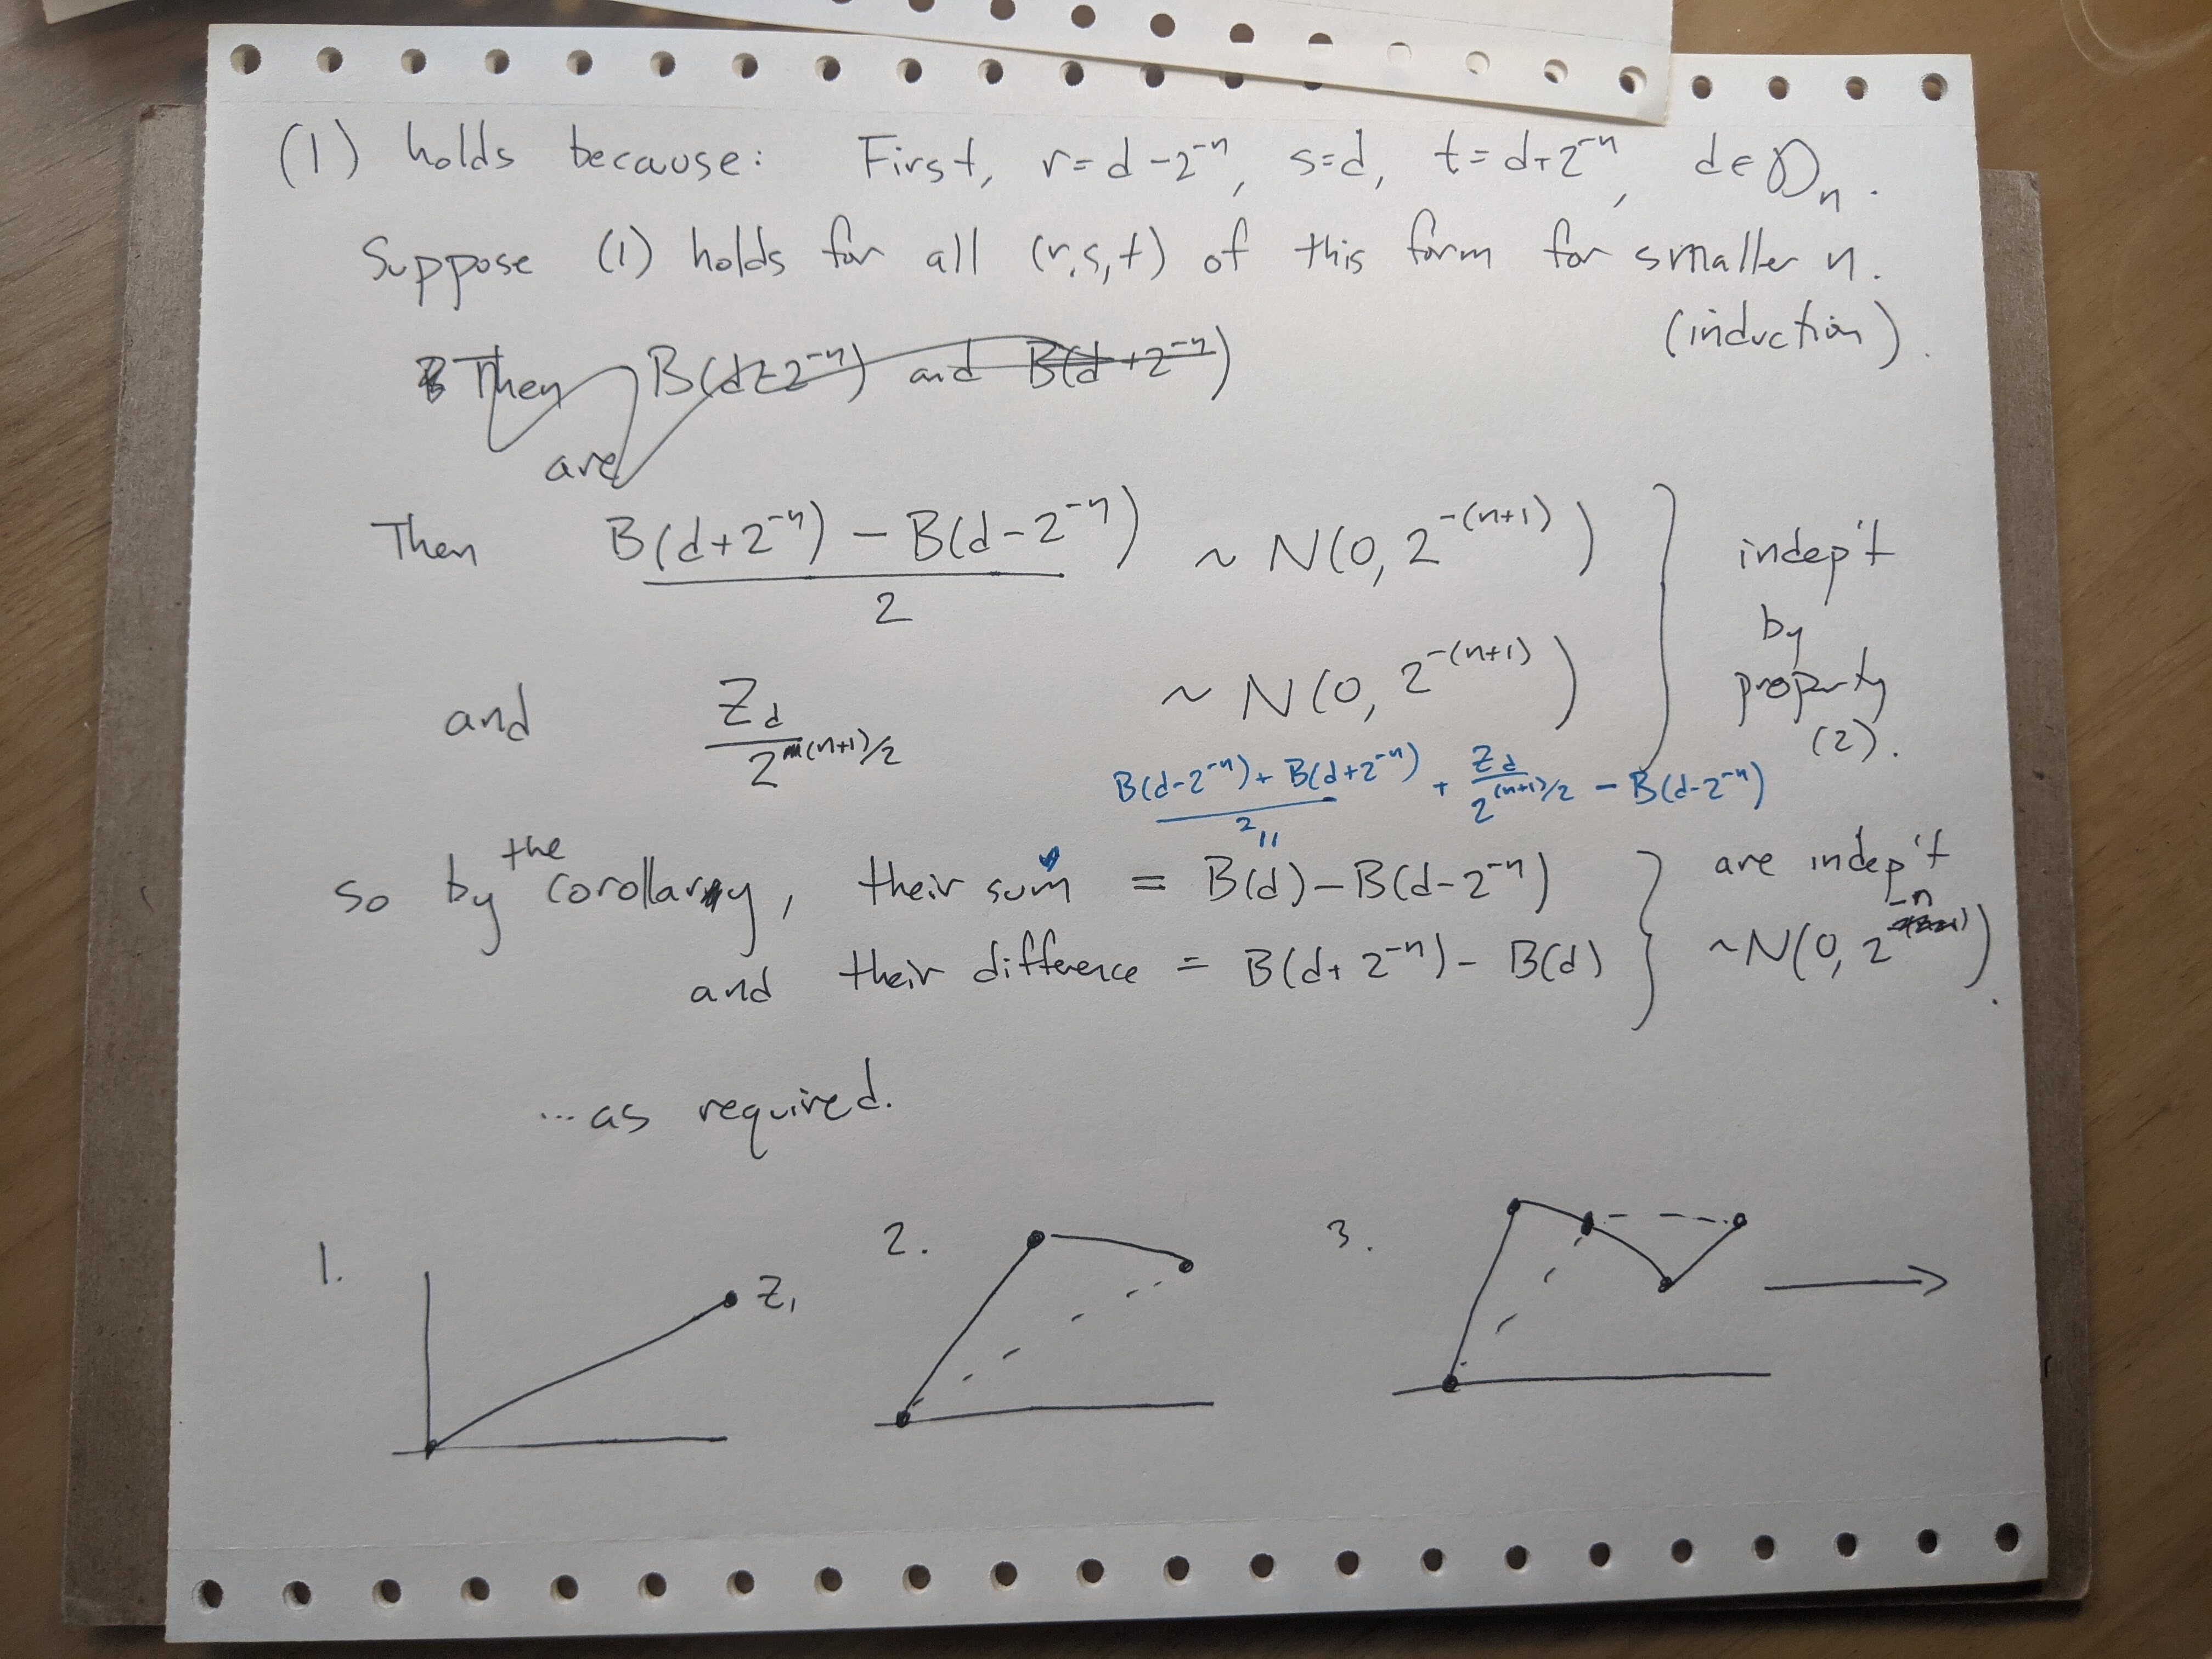 (1) holds because: First, r = d - 2^{-n}, s = d, t = d + 2^{-n}, d ∈ 𝒟_n.
Suppose (1) holds for all (r, s, t) of this form for smaller n.
(induction).
Then B(d ± 2^{-n}) and B(d + 2^{-n})
are
Then (B(d + 2^{-n}) - B(d - 2^{-n})) / 2 ~ N(0, 2^{-(n+1)}) } indep't
by
and Z_d / 2^{(n+1)/2} ~ N(0, 2^{-(n+1)}) property
(2).
(B(d - 2^{-n}) + B(d + 2^{-n})) / 2 + Z_d / 2^{(n+1)/2} - B(d - 2^{-n})
so by the corollary, their sum = B(d) - B(d - 2^{-n}) } are indep't
and their difference = B(d + 2^{-n}) - B(d) ~ N(0, 2^{-n}).
...as required.
1. Z_1 2. 3.